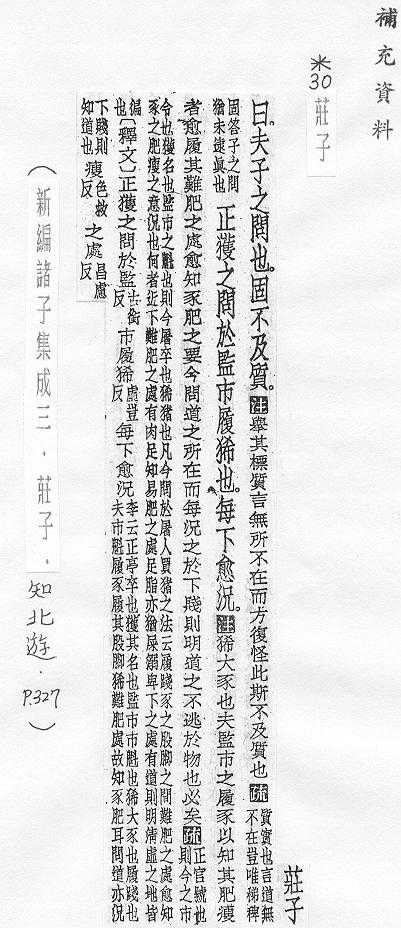 補充資料
※30 莊子
莊子
曰。夫子之問也。固不及質。注舉其標質言無所不在而方復怪此斯不及質也疏質實也言道無不在豈唯稊稗
固答子之問猶未逮真也 正獲之問於監市履狶也。每下愈況。注狶大豕也夫監市之履豕以知其肥瘦
者愈履其難肥之處愈知豕肥之要今問道之所在而每況之於下賤則明道之不逃於物也必矣疏正官號也則今之市
令也獲名也監市之魁也則今屠卒也狶猪也凡今問於屠人買猪之法云履踐豕之股脚之間難肥之處愈知
豕之肥瘦之意況也何者近下難肥之處有肉足知易肥之處足脂亦猶屎溺卑下之處有道則明清虛之地皆
徧也〔釋文〕正獲之問於監古銜反 市履狶虛豈反 每下愈況李云正亭卒也獲其名也監市市魁也狶大豕也履踐也夫市魁履豕履其股脚狶難肥處故知豕肥耳問道亦況
下賤則知道也 瘦色救反 之處昌慮反
（新編諸子集成三．莊子．知北遊．P.327）